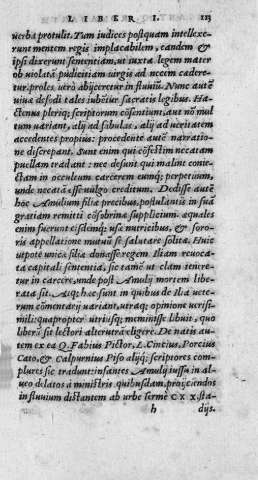 LIBER I. 113
uerba protulit. Tum iudices postquam intellexe-
runt mentem regis implacabilem, eandem &
ipsi dixerunt sententiam, ut iuxta legem mater
ob uiolatã pudicitiam uirgis ad necem cædere-
tur: proles uero abijceretur in fluuiũ. Nunc autẽ
uiua defodi tales iubẽtur sacratis legibus. Ha-
ctenus plerиq; scriptorum cõsentiunt, aut nõ mul
tum uariant, alij ad fabulas, alij ad ueritatem
accedentes propius: procedente autẽ narratio-
ne discrepant. Sunt enim qui cõfestim necatam
puellam tradant: nec desunt qui malint conie-
ctam in occultum carcerem eumq; perpetuum,
unde necatã esse uulgo creditum. Dedisse autẽ
hoc Amulium filiæ precibus, postulantis in suã
gratiam remitti cõsobrinæ supplicium. æquales
enim fuerant eisdemq; usæ nutricibus, & soro-
ris appellatione mutuũ se salutare solitæ. Huic
utpote unicæ filiæ donasse regem. Iliam reuoca-
ta capitali sententia, sic tamẽ ut clam tenere-
tur in carcere, unde post Amulij mortem libe-
rata sit. Atq; hæc sunt in quibus de Ilia uete-
rum cõmentarij uariant, utraq; opinione uerisi-
mili: quapropter utriusq; meminisse libuit, quo
liberũ sit lectori alterutrã eligere. De natis au-
tem ex ea Q. Fabius Pictor, L. Cincius, Porcius
Cato, & Calpurnius Piso alijq; scriptores com-
plures sic tradunt: infantes Amulij iussu in al-
ueo delatos à ministris quibusdam, proijciendos
in fluuium distantem ab urbe ferme CXX. sta-
h dijs.